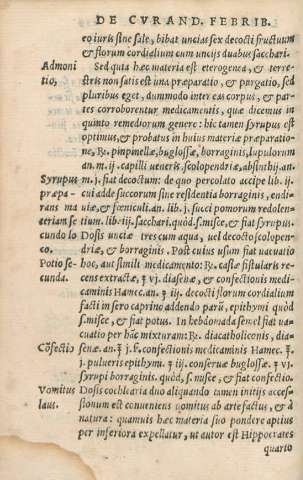 DE CVRAND. FEBRIB.
eo iuris sine sale, bibat uncias sex decocti fructuum
& florum cordialium cum uncijs duabus sacchari.
Admoni Sed quia hæc materia est eterogenea, & terre-
tio, stris non satis est una præparatio, & purgatio, sed
pluribus eget, dummodo inter eas corpus, & par-
tes corroborentur medicamentis, quæ dicemus in
quinto remediorum genere: hic tamen syrupus est
optimus, & probatus in huius materiæ præparatio-
ne, ℞. pimpinellæ, buglossæ, borraginis, lupulorum
an. m. ij. capilli ueneris. scolopendriæ, absinthij. an.
Syrupus m. j. fiat decoctum: de quo percolato accipe lib. ij.
præpa- cui adde succorum sine residentia borraginis, endi-
rans ma uiæ, & fœniculi. an. lib. j. succi pomorum redolen-
teriam se tium. lib. iij. sacchari. quòd. s. misce, & fiat syrupus.
cundo lo Dosis unciæ tres cum aqua, uel decocto scolopen-
co. driæ, & borraginis. Post cuius usum fiat uacuatio
Potio se- hoc, aut simili medicamento: ℞. casiæ fistularis re
cunda. cens extractæ, ʒ vj. diasenæ, & confectionis medi-
caminis Hamec. an. ʒ iij. decocti florum cordialium
facti in sero caprino addendo parũ, epithymi quòd
s. misce, & fiat potus. In hebdomada semel fiat ua-
cuatio per hãc mixturam: ℞. diacatholiconis, dia-
Cõfectio senæ. an. ʒ j. ß. confectionis medicaminis Hamec. ʒ
j. pulueris epithymi. ʒ iij. conseruæ buglossæ. ʒ vj.
syrupi borraginis. quòd, s. misce, & fiat confectio.
Vomitus Dosis cochlearia duo aliquando tamen initijs acces-
laus. sionum est conueniens uomitus ab arte factus, & à
natura: quamuis hæc materia suo pondere aptius
per inferiora expellatur, ut autor est Hippocrates
quarto